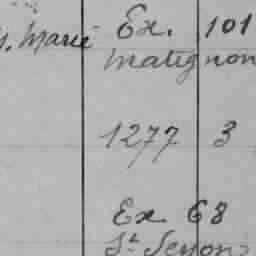 Marie Ex. 101
Matignon
1277 3
Ex 68
St